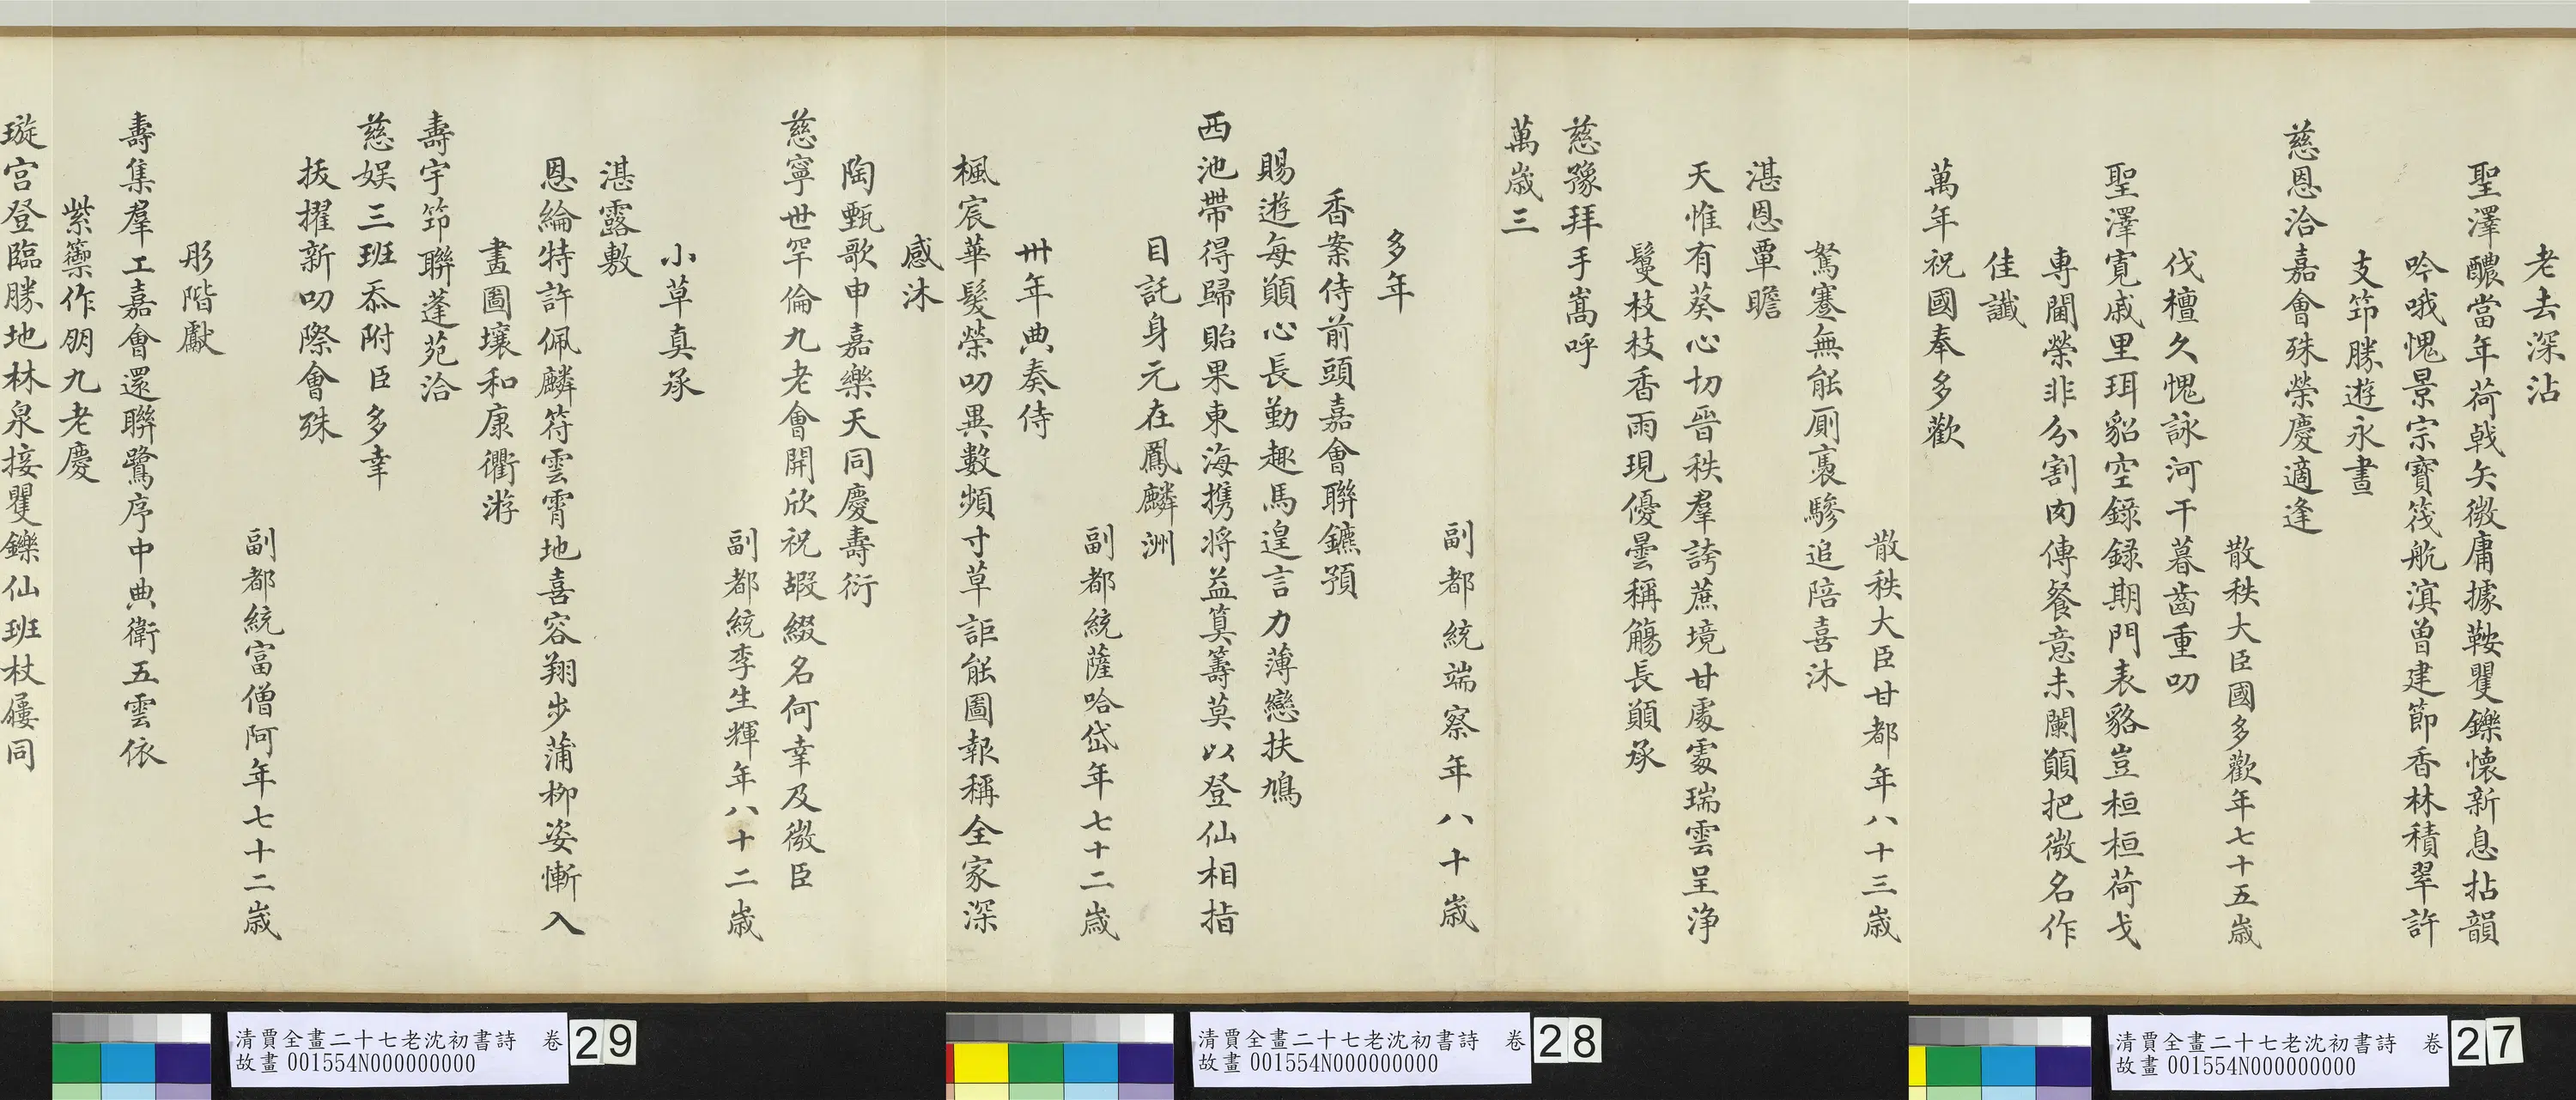 老去深沾
聖澤醲當年荷戟矢微庸據鞍矍鑠懷新息拈韻
吟哦愧景宗寶筏航滇曾建節香林積翠許
支笻勝遊永晝
慈恩洽嘉會殊榮慶適逢
散秩大臣國多歡年七十五歲
伐檀久愧詠河干暮齒重叨
聖澤寬戚里珥貂空錄錄期門表貉豈桓桓荷戈
專閫榮非分割肉傳餐意未闌願把微名作
佳讖
萬年祝國奉多歡
散秩大臣甘都年八十三歲
駑蹇無能厠裛驂追陪喜沐
湛恩覃瞻
天惟有葵心切晉秩羣誇蔗境甘處處瑞雲呈淨
鬘枝枝香雨現優曇稱觴長願承
慈豫拜手嵩呼
萬歲三
副都統端察年八十歲
多年
香案侍前頭嘉會聯鑣預
賜遊每願心長勤趣馬遑言力薄戀扶鳩
西池帶得歸貽果東海携將益筭籌莫以登仙相指
目託身元在鳳麟洲
副都統薩哈岱年七十二歲
卅年典奏侍
楓宸華髮榮叨異數頻寸草詎能圖報稱全家深
感沐
陶甄歌申嘉樂天同慶壽衍
慈寧世罕倫九老會開欣祝嘏綴名何幸及微臣
副都統李生輝年八十二歲
小草真承
湛露敷
恩綸特許佩麟符雲霄地喜容翔步蒲柳姿慚入
畫圖壤和康衢游
壽宇笻聯蓬苑洽
慈娱三班忝附臣多幸
拔擢新叨際會殊
副都統富僧阿年七十二歲
彤階獻
壽集羣工嘉會還聯鷺序中典衛五雲依
紫籞作朋九老慶
璇宫登臨勝地林泉接矍鑠仙班杖屨同
清賈全畫二十七老沈初書詩 卷 27
故畫 001554N000000000
清賈全畫二十七老沈初書詩 卷 28
故畫 001554N000000000
清賈全畫二十七老沈初書詩 卷 29
故畫 001554N000000000